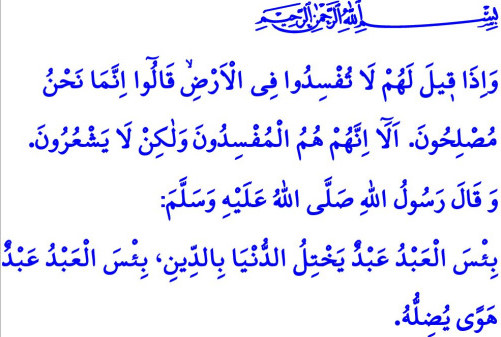 بِسْمِ اللهِ الرَّحْمٰنِ الرَّحِيمِ
وَاِذَا ق۪يلَ لَهُمْ لَا تُفْسِدُوا فِى الْاَرْضِۙ قَالُٓوا اِنَّمَا نَحْنُ
مُصْلِحُونَ. اَلَٓا اِنَّهُمْ هُمُ الْمُفْسِدُونَ وَلٰكِنْ لَا يَشْعُرُونَ.
وَ قَالَ رَسُولُ اللهِ صَلَّى اللهُ عَلَيْهِ وَسَلَّمَ:
بِئْسَ الْعَبْدُ عَبْدٌ يَخْتِلُ الدُّنْيَا بِالدِّينِ، بِئْسَ الْعَبْدُ عَبْدٌ
هَوًى يُضِلُّهُ.